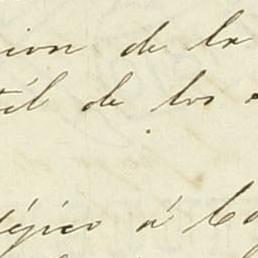 ion de la
til de los
légico á Co